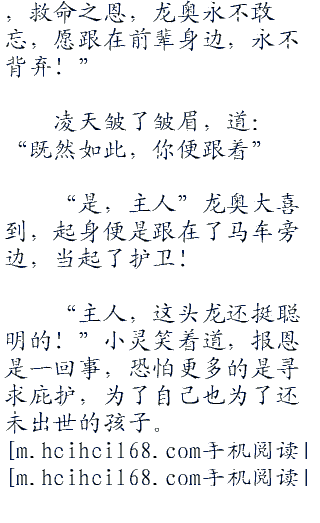 ，救命之恩，龙奥永不敢
忘，愿跟在前辈身边，永不
背弃！”
凌天皱了皱眉，道：
“既然如此，你便跟着”
“是，主人”龙奥大喜
到，起身便是跟在了马车旁
边，当起了护卫！
“主人，这头龙还挺聪
明的！”小灵笑着道，报恩
是一回事，恐怕更多的是寻
求庇护，为了自己也为了还
未出世的孩子。
[m.hcihcil68.com手机阅读|
[m.hcihcil68.com手机阅读|